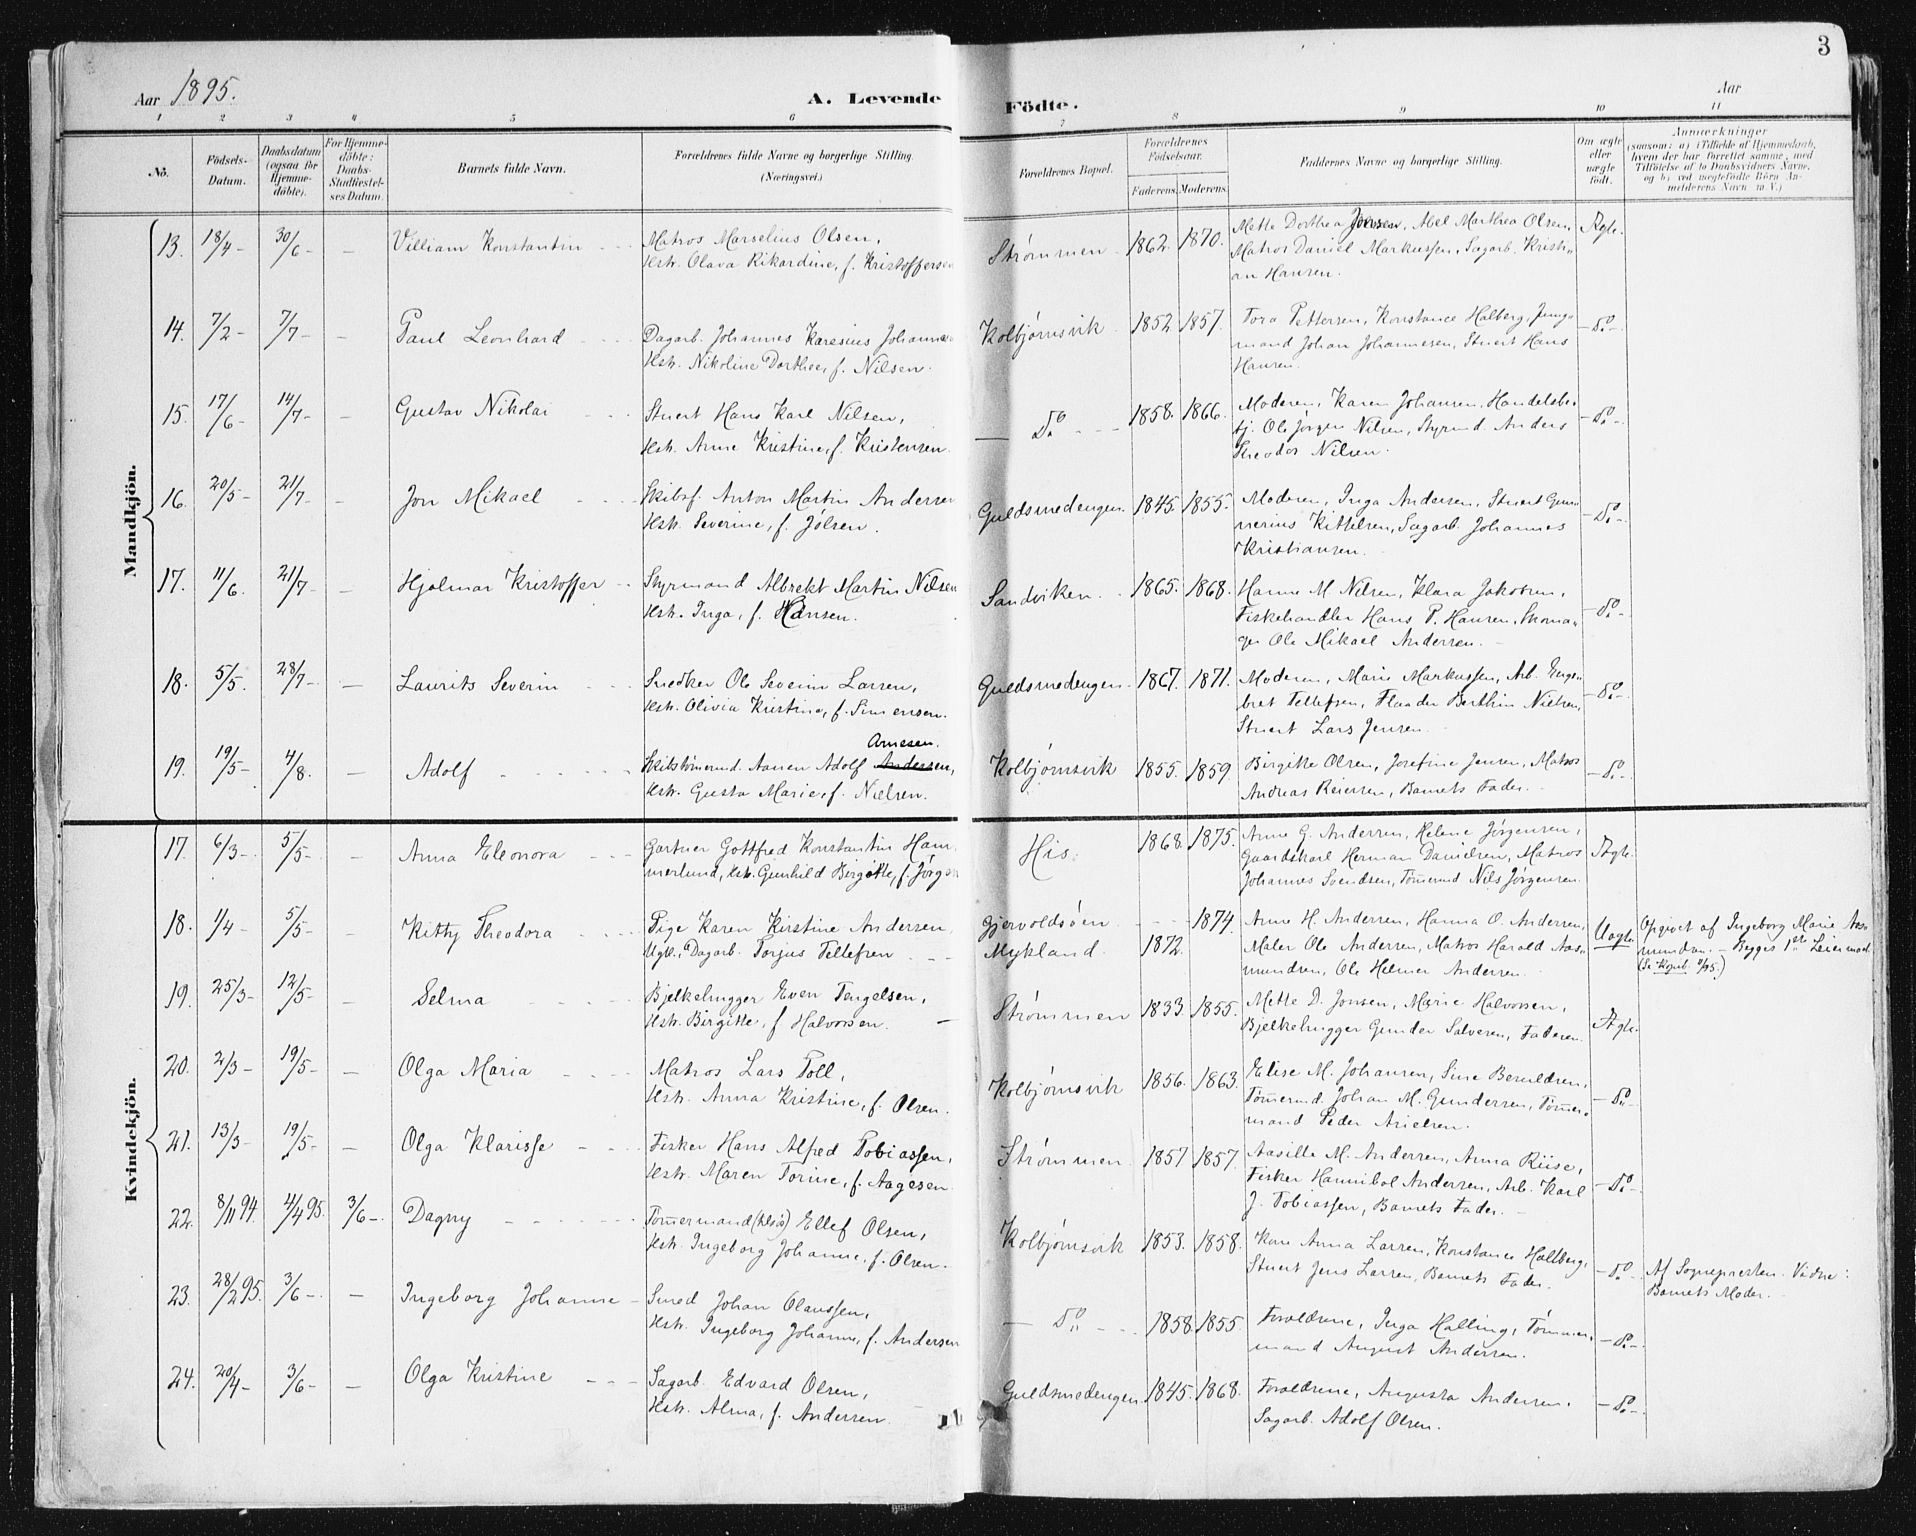 3
Aar 1895.
A. Levende Födte.
Aar
1 2 3 4 5 6 7 8 9 10 11
No.
Födsels-Datum.
Daabsdatum (ogsaa för Hjemmedöbte).
For Hjemmedöbte: Daabs-Stadfæstelses Datum.
Barnets fulde Navn.
Forældrenes fulde Navne og borgerlige Stilling. (Næringsvei.)
Forældrenes Bopæl.
Forældrenes Födselsaar.
Faderens. Moderens.
Faddernes Navne og borgerlige Stilling.
Om ægte eller uægte födt.
Anmærkninger
(saasom: a) i Tilfælde af Hjemmedaab, hvem der har forrettet samme, med Tilföielse af to Daabsvidners Navne, og b) ved uægtefödte Börn Anmelderens Navn m. V.)
Mandkjön.
13. 18/4- 30/6- — Villiam Konstantin - - Matros Marselius Olsen,
Hstr. Olava Rikardine, f. Kristoffersen
Strømmen 1862. 1870. Mette Dorthea Jensen, Abel Marthea Olsen,
Matros Daniel Markussen, Sagarb. Kristi-
an Hansen. Ægte.
14. 7/2- 7/7- — Paul Leonhard - - - Dagarb. Johannes Karesius Johannes
Hstr. Nikoline Dorthee, f. Nilsen.
Kolbjørnsvik 1852. 1857. Tora Pettersen, Konstance Halberg, Jung-
mand Johan Johannesen, Stuert Hans
Hansen. - do -
15. 17/6- 14/7- — Gustav Nikolai - - Stuert Hans Karl Nilsen,
Hstr. Anne Kristine, f. Kristensen.
— Do - - - 1858. 1866. Moderen, Karen Johansen, Handelsbe-
tj. Ole Jørgen Nilsen, Styrmd. Anders
Theodor Nilsen. - do -
16. 20/5- 21/7- — Jon Mikael - - - Skibsf. Anton Martin Andersen
Hstr. Severine, f. Jølsen.
Guldsmedengen. 1845. 1855. Moderen, Inga Andersen, Stuert Gun-
nerius Kittelsen, Sagarb. Johannes
Kristiansen. - do -
17. 11/6. 21/7- — Hjalmar Kristoffer - - Styrmand Albrekt Martin Nilsen
Hstr. Inga, f. Hansen.
Sandviken. 1865. 1868. Hanne M. Nilsen, Klara Jakobsen,
Fiskehandler Hans P. Hansen, Skoma-
ger Ole Mikael Andersen. - do -
18. 5/5. 28/7- — Laurits Severin - - - Snedker Ole Severin Larsen,
Hstr. Olivia Kristine, f. Simensen.
Guldsmedengen. 1867. 1871. Moderen, Marie Markussen, Arb. Enge-
bret Tellefsen, Berthin Nielsen,
Stuert Lars Jensen. - do -
19. 19/5- 4/8. — Adolf - - - - - Skibstømrmd. Aanen Adolf Andersen, Arnesen.
Hstr. Gusta Marie, f. Nielsen.
Kolbjørnsvik 1855. 1859. Birgitte Olsen, Josefine Jensen, Matros
Andreas Reiersen, Barnets Fader. - do -
Kvindekjön.
17. 6/3- 5/5- — Anna Eleonora - - - Gartner Gottfred Konstantin Ham
merlund, Hstr. Gunhild Birgitte, f. Jørgen
His. 1868. 1875. Anne G. Andersen, Helene Jørgensen,
Gaardskarl Herman Danielsen, Matros
Johannes Svendsen, Tømrmd Nils Jørgensen. Ægte.
18. 1/4- 5/5- — Kitty Theodora - - - Pige Karen Kirstine Andersen,
Ugb. Dagarb. Torjus Tellefsen - - -
Gjervoldsøen - - - 1874. Anne H. Andersen, Hanna O. Andersen,
Mykland. 1872. Maler Ole Andersen, Matros Harald Aas-
mundsen, Ole Helmer Andersen. Uægte Opgivet af Ingeborg Marie Aas
mundsen. - Begges 1ste Leiermaal.
19. 25/3- 12/5- — Selma - - - Bjelkehugger Even Tengelsen,
Hstr. Birgitte, f. Halvorsen.
Strømmen 1833. 1855. Mette D. Jonsen, Marie Halvorsen,
Bjelkehugger Gunder Salvesen, Faderen. Ægte.
20. 2/3- 19/5- — Olga Maria - - - Matros Lars Toll,
Hstr. Anna Kristine, f. Olsen.
Kolbjørnsvik 1856. 1863. Elise M. Johansen, Sine Berulsen,
Tømrmd. Johan M. Gundersen, Tømmer-
mand Peder Arielsen. - do -
21. 13/3- 19/5- — Olga Klarisse - - - Fisker Hans Alfred Tobiassen,
Hstr. Maren Torine, f. Aagesen.
Strømmen. 1857 1857. Aasille M. Andersen, Anna Riise,
Fisker Hannibal Andersen, Arb. Karl
J. Tobiassen, Barnets Fader. - do -
22. 8/11 94. 4/4 95. 3/6-. Dagny - - - - - Tømmermand Ellef Olsen,
Hstr. Ingeborg Johanne, f. Olsen.
Kolbjørnsvik 1853. 1858. Kone Anna Larsen, Konstance Hallberg,
Stuert Jens Larsen, Barnets Fader. - do - Af Sognepresten. Vidne:
Barnets Moder.
23. 28/2 95. 3/6-. — Ingeborg Johanne - Smed Johan Olaussen,
Hstr. Ingeborg Johanne, f. Andersen
— Do - - - 1858. 1855. Forældrene, Inga Halling, Tømmer-
mand August Andersen. - do -
24. 20/4- 3/6- — Olga Kristine - - - Sagarb. Edvard Olsen,
Hstr. Alma, f. Andersen.
Guldsmedengen. 1845. 1868. Forældrene, Augusta Andersen,
Sagarb. Adolf Olsen. - do -